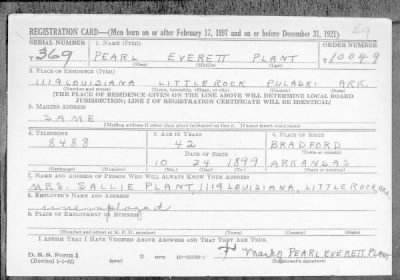 REGISTRATION CARD—(Men born on or after February 17, 1897 and on or before December 31, 1921)
SERIAL NUMBER 1. NAME (Print) ORDER NUMBER
T 369 PEARL EVERETT PLANT T 10049
(First) (Middle) (Last)
2. PLACE OF RESIDENCE (Print)
1119 LOUISIANA LITTLE ROCK PULASKI ARK.
(Number and street) (Town, township, village, or city) (County) (State)
[THE PLACE OF RESIDENCE GIVEN ON THE LINE ABOVE WILL DETERMINE LOCAL BOARD
JURISDICTION; LINE 2 OF REGISTRATION CERTIFICATE WILL BE IDENTICAL]
3. MAILING ADDRESS
SAME
[Mailing address if other than place indicated on line 2. If same insert word same]
4. TELEPHONE 5. AGE IN YEARS 6. PLACE OF BIRTH
8488 42 BRADFORD
DATE OF BIRTH (Town or county)
10 24 1899 ARKANSAS
(Exchange) (Number) (Mo.) (Day) (Yr.) (State or country)
7. NAME AND ADDRESS OF PERSON WHO WILL ALWAYS KNOW YOUR ADDRESS
MRS. SALLIE PLANT, 1119 LOUISIANA, LITTLE ROCK, ARK.
8. EMPLOYER'S NAME AND ADDRESS
unemployed
9. PLACE OF EMPLOYMENT OR BUSINESS
(Number and street or R. F. D. number) (Town) (County) (State)
I AFFIRM THAT I HAVE VERIFIED ABOVE ANSWERS AND THAT THEY ARE TRUE.
D. S. S. FORM 1
(Revised 1-1-42) (over) PEARL EVERETT PLANT
(Registrant's signature)